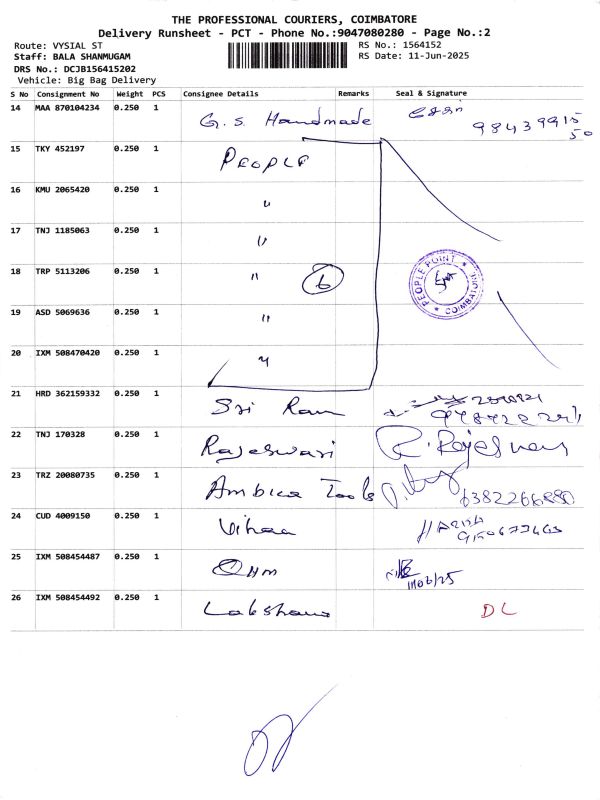 THE PROFESSIONAL COURIERS, COIMBATORE
Delivery Runsheet - PCT - Phone No.:9047080280 - Page No.:2
Route: VYSIAL ST
RS No.: 1564152
Staff: BALA SHANMUGAM
RS Date: 11-Jun-2025
DRS No.: DCJB156415202
Vehicle: Big Bag Delivery
S No Consignment No Weight PCS Consignee Details Remarks Seal & Signature
14 MAA 870104234 0.250 1 G.S. Handmade
98439915
50
15 TKY 452197 0.250 1 PEOPLE
16 KMU 2065420 0.250 1 "
17 TNJ 1185063 0.250 1 "
18 TRP 5113206 0.250 1 " 6
PEOPLE POINT ★ COIMBATORE ★
19 ASD 5069636 0.250 1 "
20 IXM 508470420 0.250 1 "
21 HRD 362159332 0.250 1 Sri Ram
22 TNJ 170328 0.250 1 Rajeswari R. Rajeswari
23 TRZ 20080735 0.250 1 Ambica Tools 6382266880
24 CUD 4009150 0.250 1 Vihaa
25 IXM 508454487 0.250 1 Ohm
11/06/25
26 IXM 508454492 0.250 1 Lakshana DL